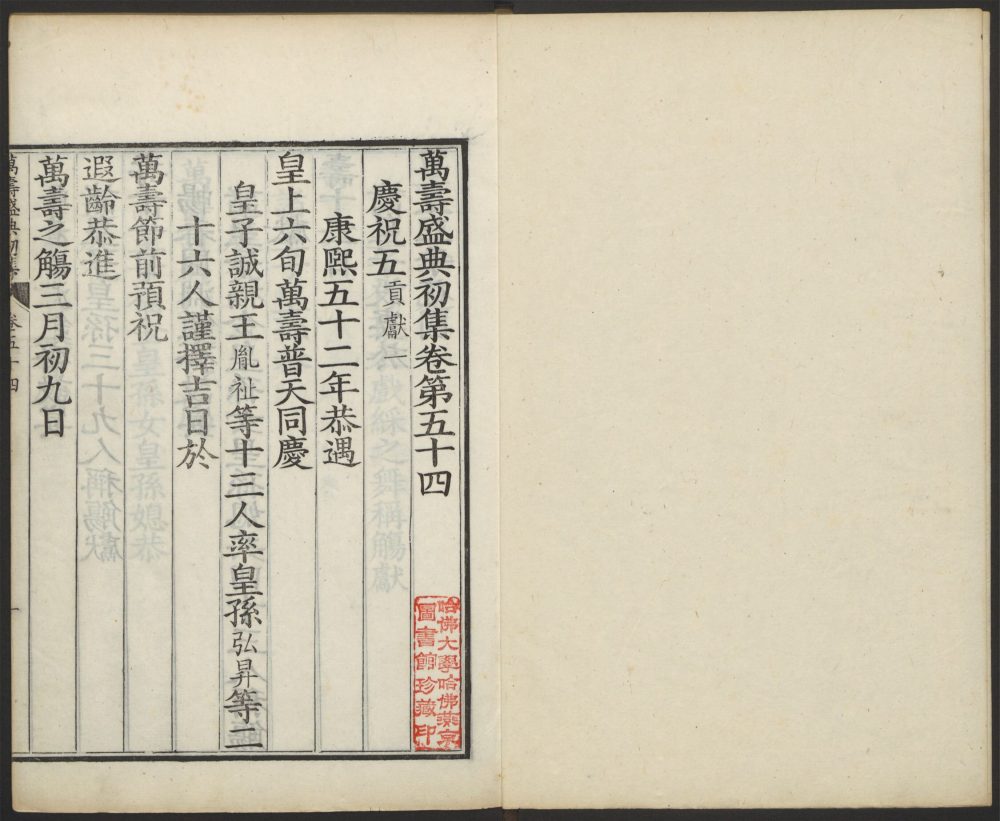 萬壽盛典初集卷第五十四
慶祝五貢獻一
康熙五十二年恭遇
皇上六旬萬壽普天同慶
皇子誠親王胤祉等十三人率皇孫弘昇等二
十六人謹擇吉日於
萬壽節前預祝
遐齡恭進
萬壽之觴三月初九日
萬壽盛典初集 卷五十四 一
哈佛大學哈佛燕京
圖書館珍藏印